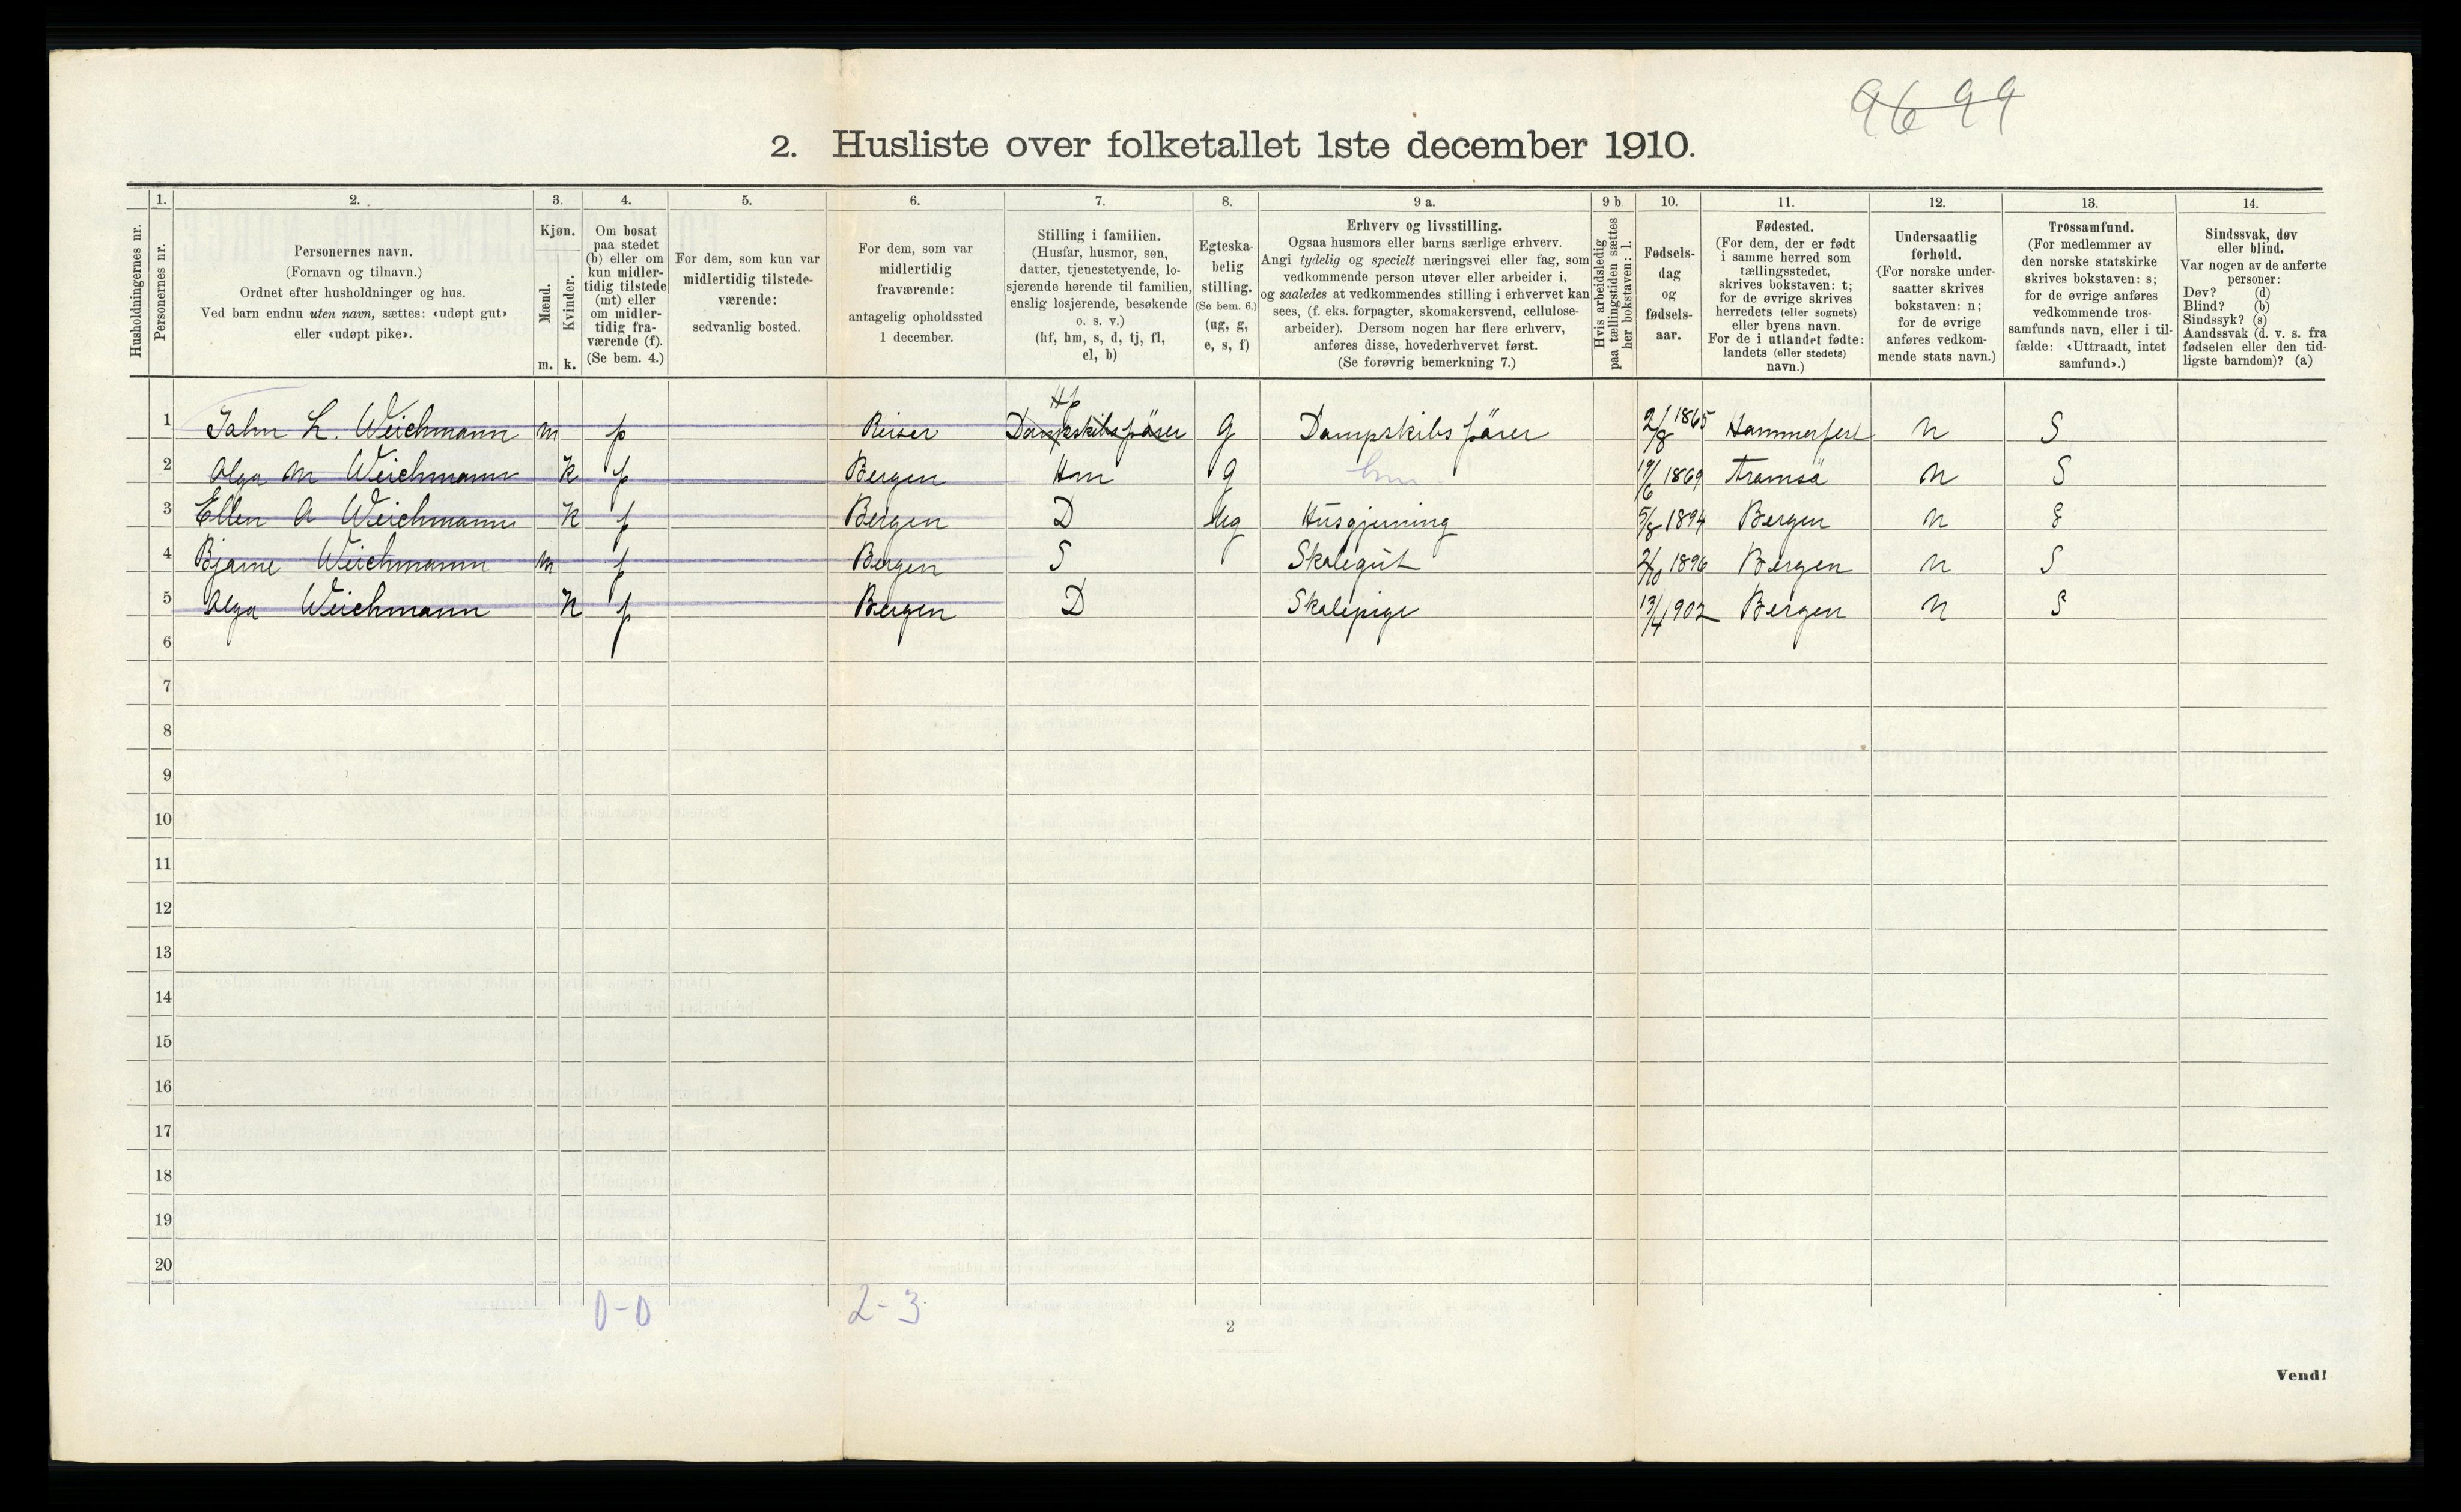 9699
2. Husliste over folketallet 1ste december 1910.
Husholdningernes nr.
1.
Personernes nr.
2.
Personernes navn.
(Fornavn og tilnavn.)
Ordnet efter husholdninger og hus.
Ved barn endnu uten navn, sættes: «udøpt gut»
eller «udøpt pike».
3.
Kjøn.
Mænd.
Kvinder.
m. k.
4.
Om bosat
paa stedet
(b) eller om
kun midler-
tidig tilstede
(mt) eller
om midler-
tidig fra-
værende (f).
(Se bem. 4.)
5.
For dem, som kun var
midlertidig tilstede-
værende:
sedvanlig bosted.
6.
For dem, som var
midlertidig
fraværende:
antagelig opholdssted
1 december.
7.
Stilling i familien.
(Husfar, husmor, søn,
datter, tjenestetyende, lo-
sjerende hørende til familien,
enslig losjerende, besøkende
o. s. v.)
(hf, hm, s, d, tj, fl,
el, b)
8.
Egteska-
belig
stilling.
(Se bem. 6.)
(ug, g,
e, s, f)
9 a.
Erhverv og livsstilling.
Ogsaa husmors eller barns særlige erhverv.
Angi tydelig og specielt næringsvei eller fag, som
vedkommende person utøver eller arbeider i,
og saaledes at vedkommendes stilling i erhvervet kan
sees, (f. eks. forpagter, skomakersvend, cellulose-
arbeider). Dersom nogen har flere erhverv,
anføres disse, hovederhvervet først.
(Se forøvrig bemerkning 7.)
9 b
Hvis arbeidsledig
paa tællingstiden sættes
her bokstaven: l.
10.
Fødsels-
dag
og
fødsels-
aar.
11.
Fødested.
(For dem, der er født
i samme herred som
tællingsstedet,
skrives bokstaven: t;
for de øvrige skrives
herredets (eller sognets)
eller byens navn.
For de i utlandet fødte:
landets (eller stedets)
navn.)
12.
Undersaatlig
forhold.
(For norske under-
saatter skrives
bokstaven: n;
for de øvrige
anføres vedkom-
mende stats navn.)
13.
Trossamfund.
(For medlemmer av
den norske statskirke
skrives bokstaven: s;
for de øvrige anføres
vedkommende tros-
samfunds navn, eller i til-
fælde: «Uttraadt, intet
samfund».)
14.
Sindssvak, døv
eller blind.
Var nogen av de anførte
personer:
Døv? (d)
Blind? (b)
Sindssyk? (s)
Aandssvak (d. v. s. fra
fødselen eller den tid-
ligste barndom)? (a)
Hf
1 John L. Weichmann m f Reiser Dampskibsförer g Dampskibsförer 2/8 1865 Hammerfest n S
2 Olga M Weichmann k f Bergen Hm g hm 19/6 1869 Tromsö n S
3 Ellen A Weichmann k f Bergen D Ug Husgjerning 5/8 1894 Bergen n S
4 Bjarne Weichmann m f Bergen S Skolegut 2/10 1896 Bergen n S
5 Olga Weichmann k f Bergen D Skolepige 13/4 1902 Bergen n S
6
7
8
9
10
11
12
13
14
15
16
17
18
19
20
0-0 2-3
2
Vend!